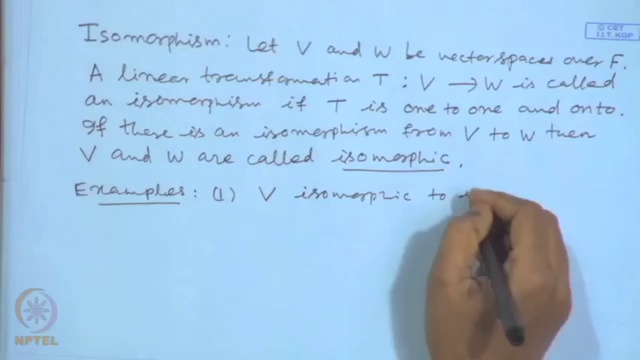 © CET
I.I.T. KGP
Isomorphism: Let V and W be vectorspaces over F.
A linear transformation T : V → W is called
an isomorphism if T is one to one and onto.
If there is an isomorphism from V to W then
V and W are called isomorphic.
Examples: (1) V isomorphic to
NPTEL